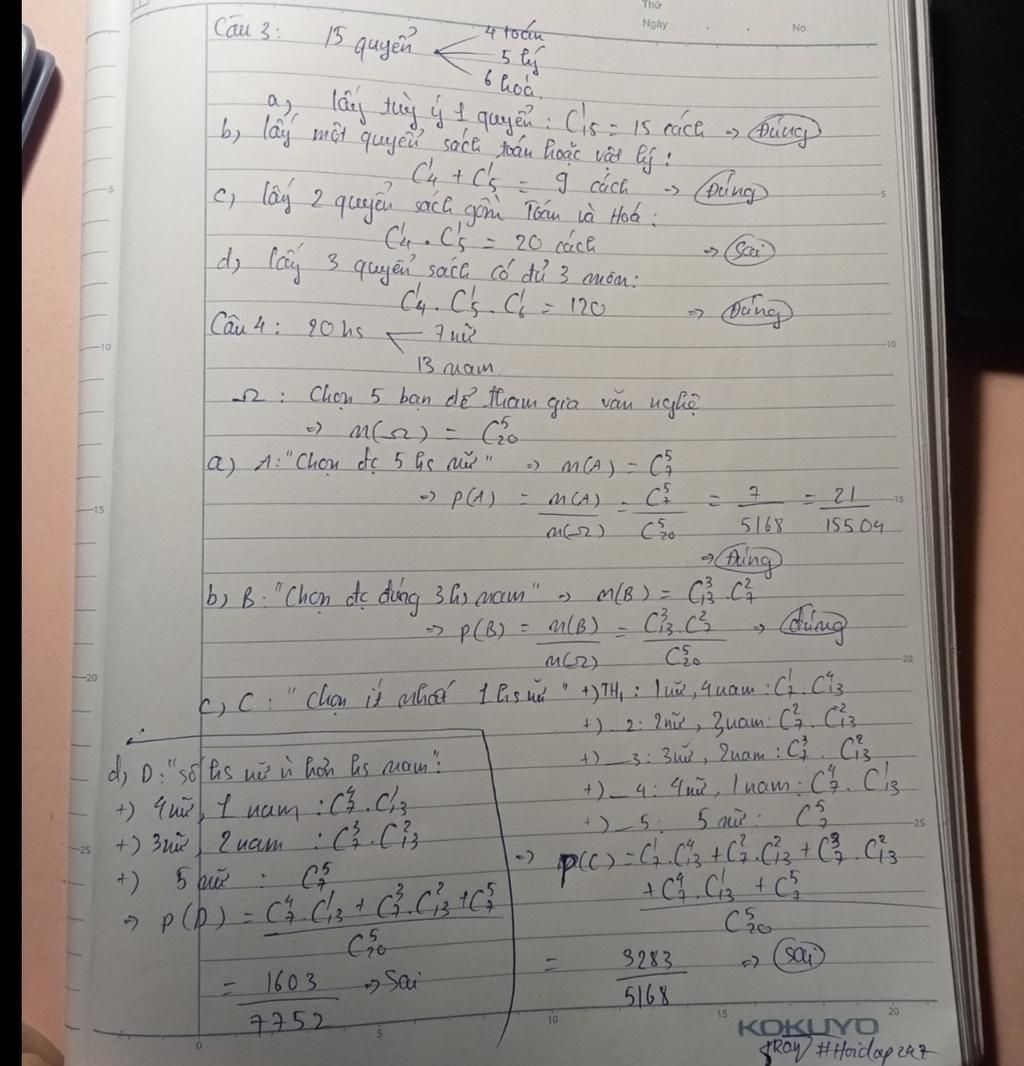 Thứ
Ngày . . No.
Câu 3: 15 quyển
4 toán
5 lý
6 hoá.
a, lấy tuỳ ý 1 quyển : C¹₁₅ = 15 cách → Đúng
b, lấy một quyển sách toán hoặc vật lý :
C¹₄ + C¹₅ = 9 cách → Đúng
c, lấy 2 quyển sách gồm Toán và Hoá :
C¹₄ . C¹₅ = 20 cách ⇒ Sai
d, lấy 3 quyển sách có đủ 3 môn:
C¹₄ . C¹₅ . C¹₆ = 120 ⇒ Đúng
Câu 4 : 20 hs
7 nữ
13 nam
Ω : Chọn 5 bạn để tham gia văn nghệ
⇒ n(Ω) = C⁵₂₀
a) A: "Chọn đc 5 hs nữ" ⇒ n(A) = C⁵₇
⇒ P(A) = n(A)/n(Ω) = C⁵₇/C⁵₂₀ = 7/5168 = 21/15504
⇒ Đúng
b, B: "Chọn đc đúng 3 hs nam" → n(B) = C³₁₃ . C²₇
⇒ P(B) = n(B)/n(Ω) = C³₁₃ . C²₇/C⁵₂₀ → đúng
c, C : "Chọn ít nhất 1 hs nữ" +) TH₁ : 1 nữ, 4 nam : C¹₇ . C⁴₁₃
+) _ 2: 2 nữ, 3 nam : C²₇ . C²₁₃
+) _ 3: 3 nữ, 2 nam : C³₇ . C²₁₃
+) _ 4: 4 nữ, 1 nam : C⁴₇ . C¹₁₃
+) _ 5: 5 nữ : C⁵₇
⇒ P(C) = C¹₇ . C⁴₁₃ + C²₇ . C²₁₃ + C³₇ . C²₁₃
+ C⁴₇ . C¹₁₃ + C⁵₇
C⁵₂₀
= 3283/5168 ⇒ Sai
d, D: "số hs nữ n hơn hs nam":
+) 4 nữ, 1 nam : C⁴₇ . C¹₁₃
+) 3 nữ, 2 nam : C³₇ . C²₁₃
+) 5 nữ : C⁵₇
⇒ P(D) = C⁴₇ . C¹₁₃ + C³₇ . C²₁₃ + C⁵₇
C⁵₂₀
= 1603/7752 → Sai
KOKUYO
#Hoidap247